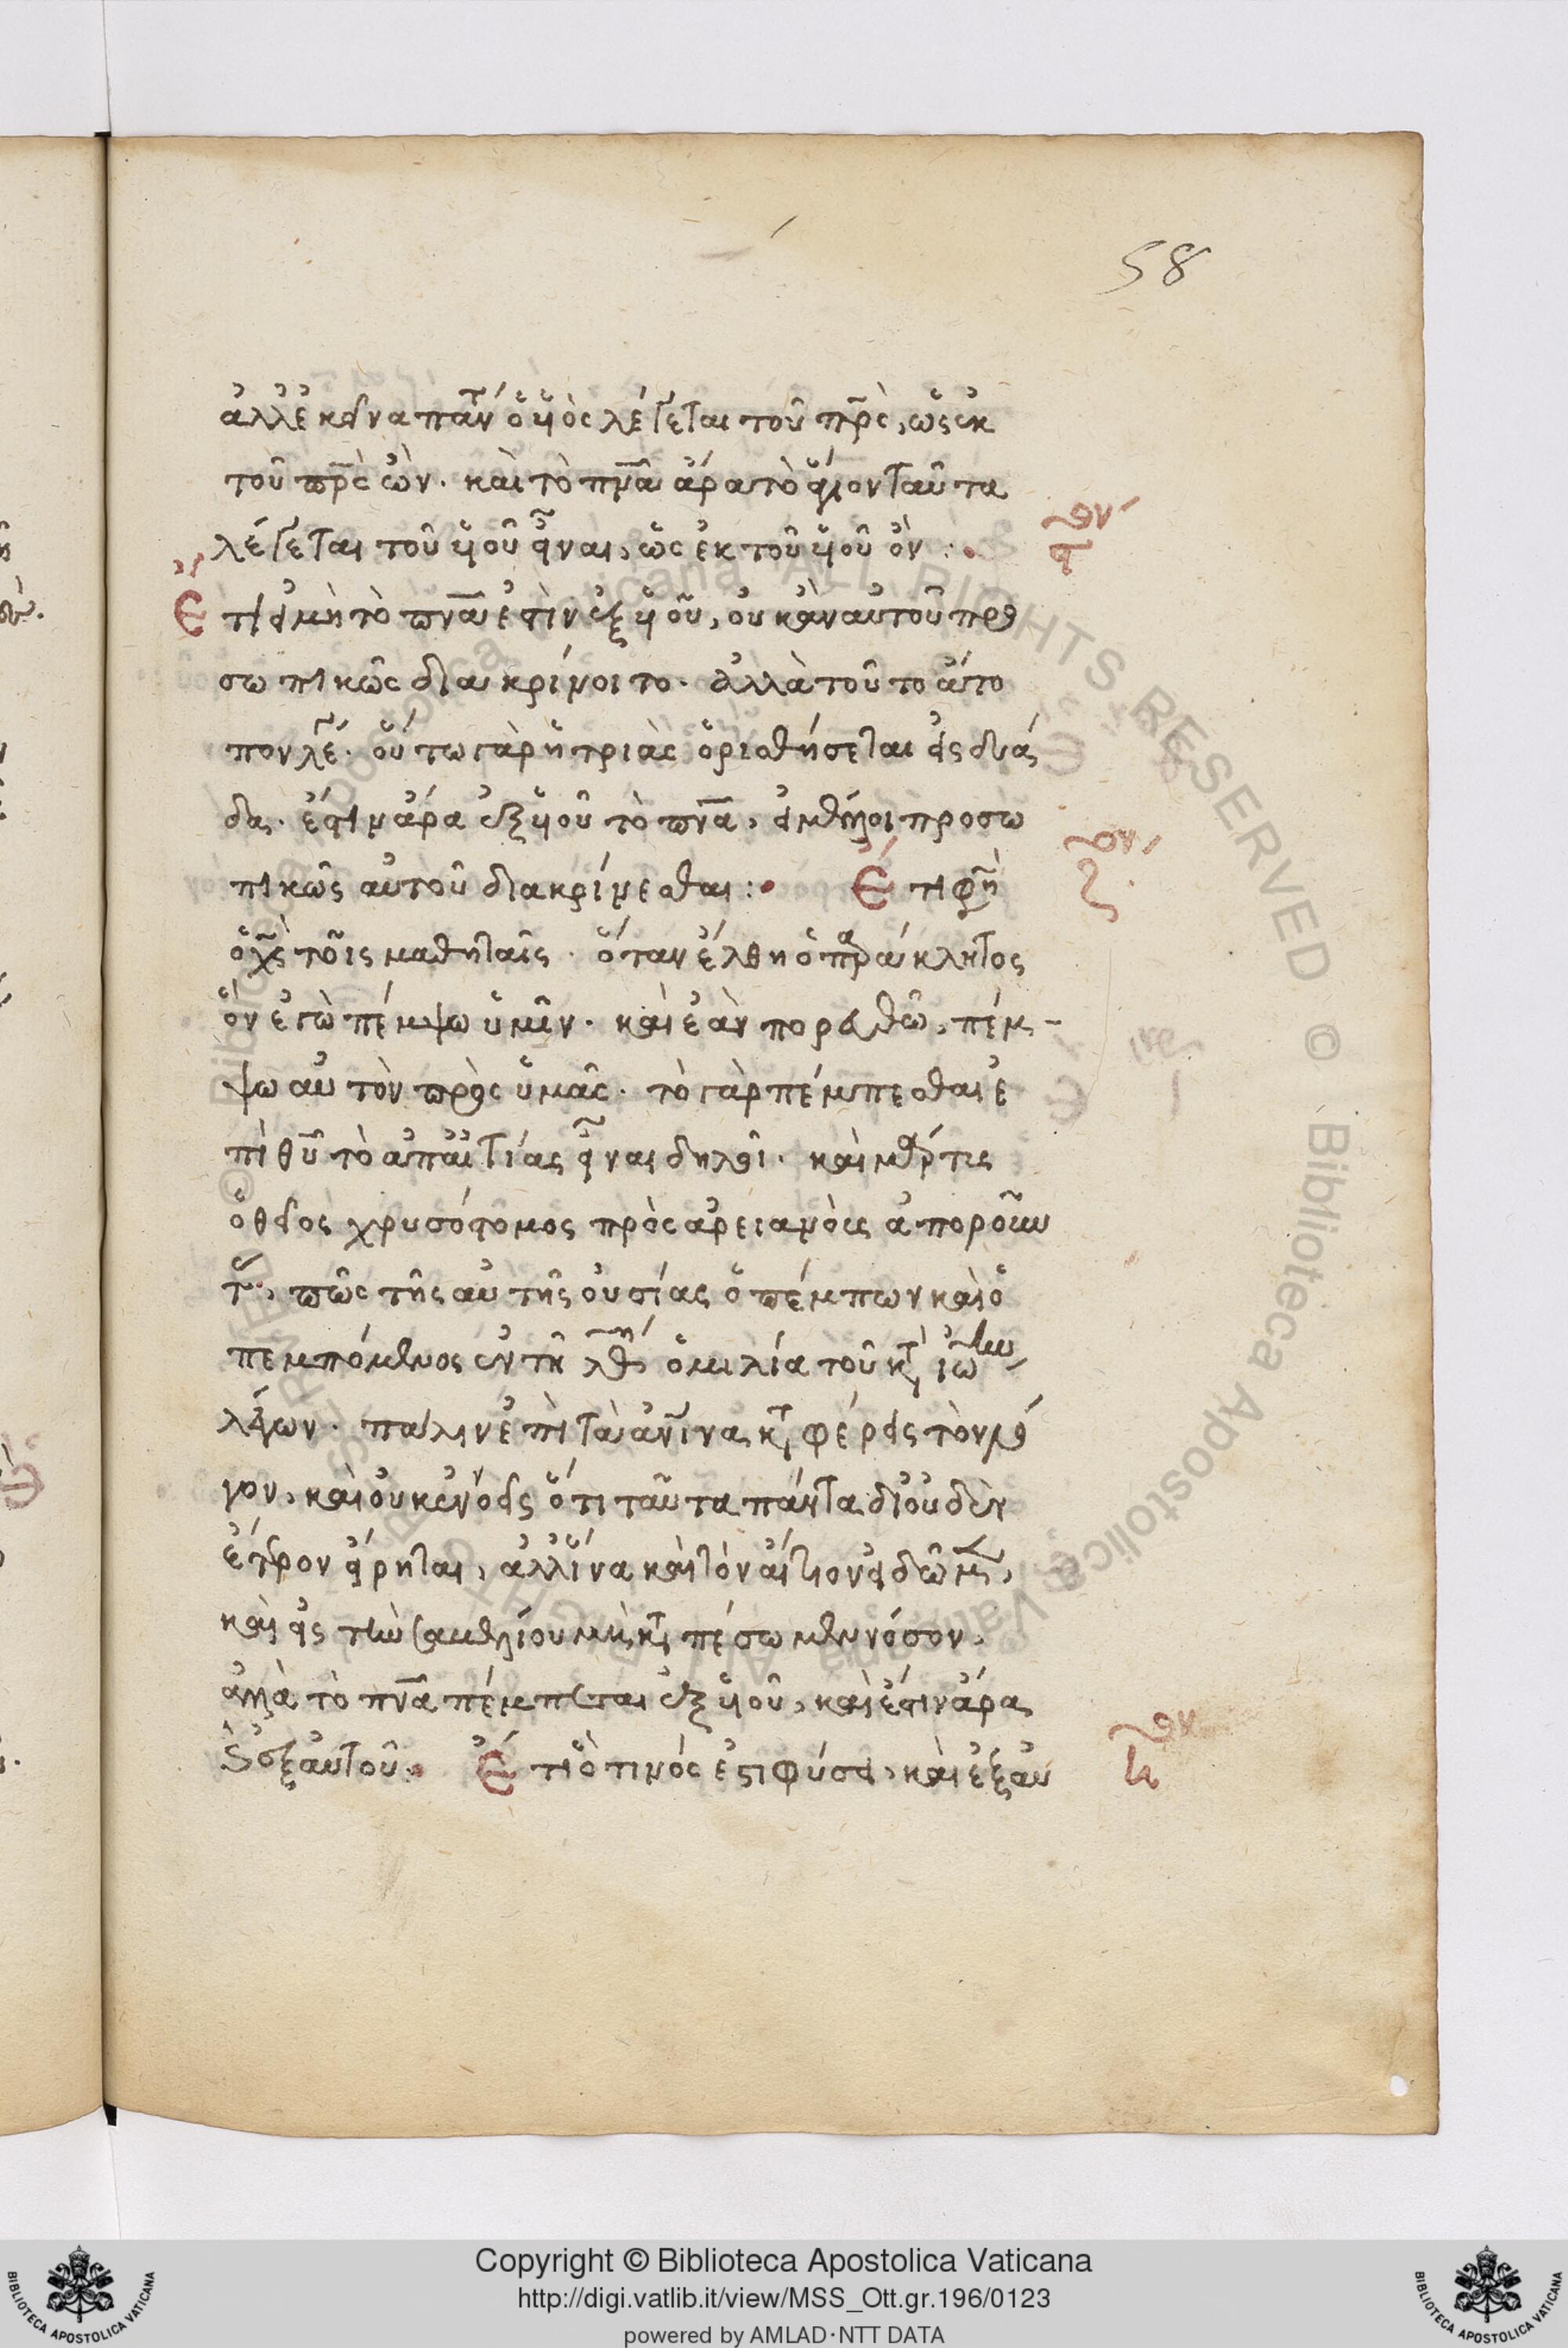 58
ἀλλ' ἐκεῖνα πάντα ὁ υἱὸς λέγεται τοῦ πρς, ὡς ἐκ
τοῦ πρς ὤν. καὶ τὸ πνα ἄρα τὸ ἅγιον ταῦτα
λέγεται τοῦ υἱοῦ εἶναι, ὡς ἐκ τοῦ υἱοῦ ὄν :
Ἔτι εἰ μὴ τὸ πνα ἐστὶν ἐξ υἱοῦ, οὐκ ἂν αὐτοῦ προ
σωπικῶς διακρίνοιτο. ἀλλὰ τοῦτο ἄτο
πον λέγειν. οὕτω γὰρ ἡ τριὰς ὁρισθήσεται εἰς δυά
δα. ἔστιν ἄρα ἐξ υἱοῦ τὸ πνα, εἰ μέλλοι προσω
πικῶς αὐτοῦ διακρίνεσθαι : Ἔτι φησὶν
ὁ χς τοῖς μαθηταῖς. ὅταν ἔλθη ὁ παράκλητος
ὃν ἐγὼ πέμψω ὑμῖν. καὶ ἐὰν πορευθῶ, πέμ-
ψω αὐτὸν πρὸς ὑμᾶς. τὸ γὰρ πέμπεσθαι ἐ
πὶ θυ τὸ ἀπ' αἰτίας εἶναι δηλοῖ. καὶ μάρτυς
ὁ θεῖος χρυσόστομος πρὸς ἀρειανοὺς ἀποροῦν
τας, πῶς τῆς αὐτῆς οὐσίας ὁ πέμπων καὶ ὁ
πεμπόμενος ἐν τῆ λθη ὁμιλία τοῦ κατὰ ἰω
λέγων. πάλιν ἐπὶ τὰ ἀνινα καταφέρεις τὸν λό
γον, καὶ οὐκ ἐννοεῖς ὅτι ταῦτα πάντα δι' οὐδὲν
ἕτερον εἴρηται, ἀλλ' ἵνα καὶ τὸν αἴτιον εἰδῶμεν,
καὶ εἰς τὴν σαβελλίου μὴ καταπέσωμεν νόσον.
ἀλλὰ τὸ πνα πέμπεται ἐξ υἱοῦ, καὶ ἔστιν ἄρα
ἐξ αὐτοῦ. Ἔτι ὅ τινός ἐστι φύσει, καὶ ἐξ αὐ
Copyright © Biblioteca Apostolica Vaticana
http://digi.vatlib.it/view/MSS_Ott.gr.196/0123
powered by AMLAD·NTT DATA